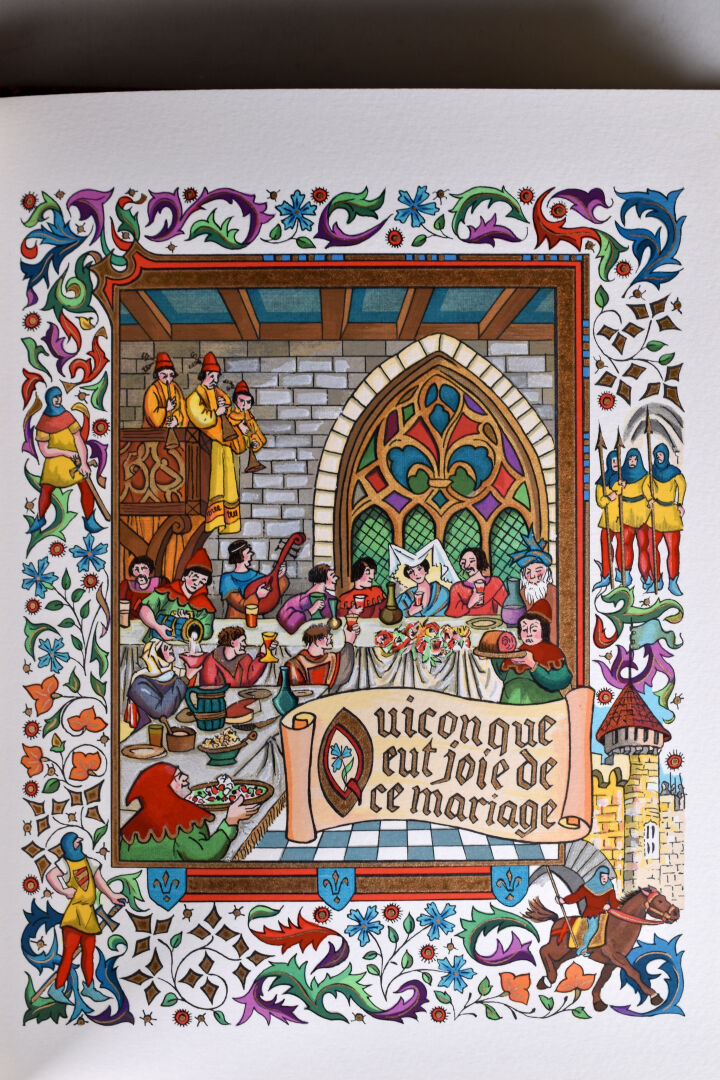 Quiconque
eut joie de
ce mariage